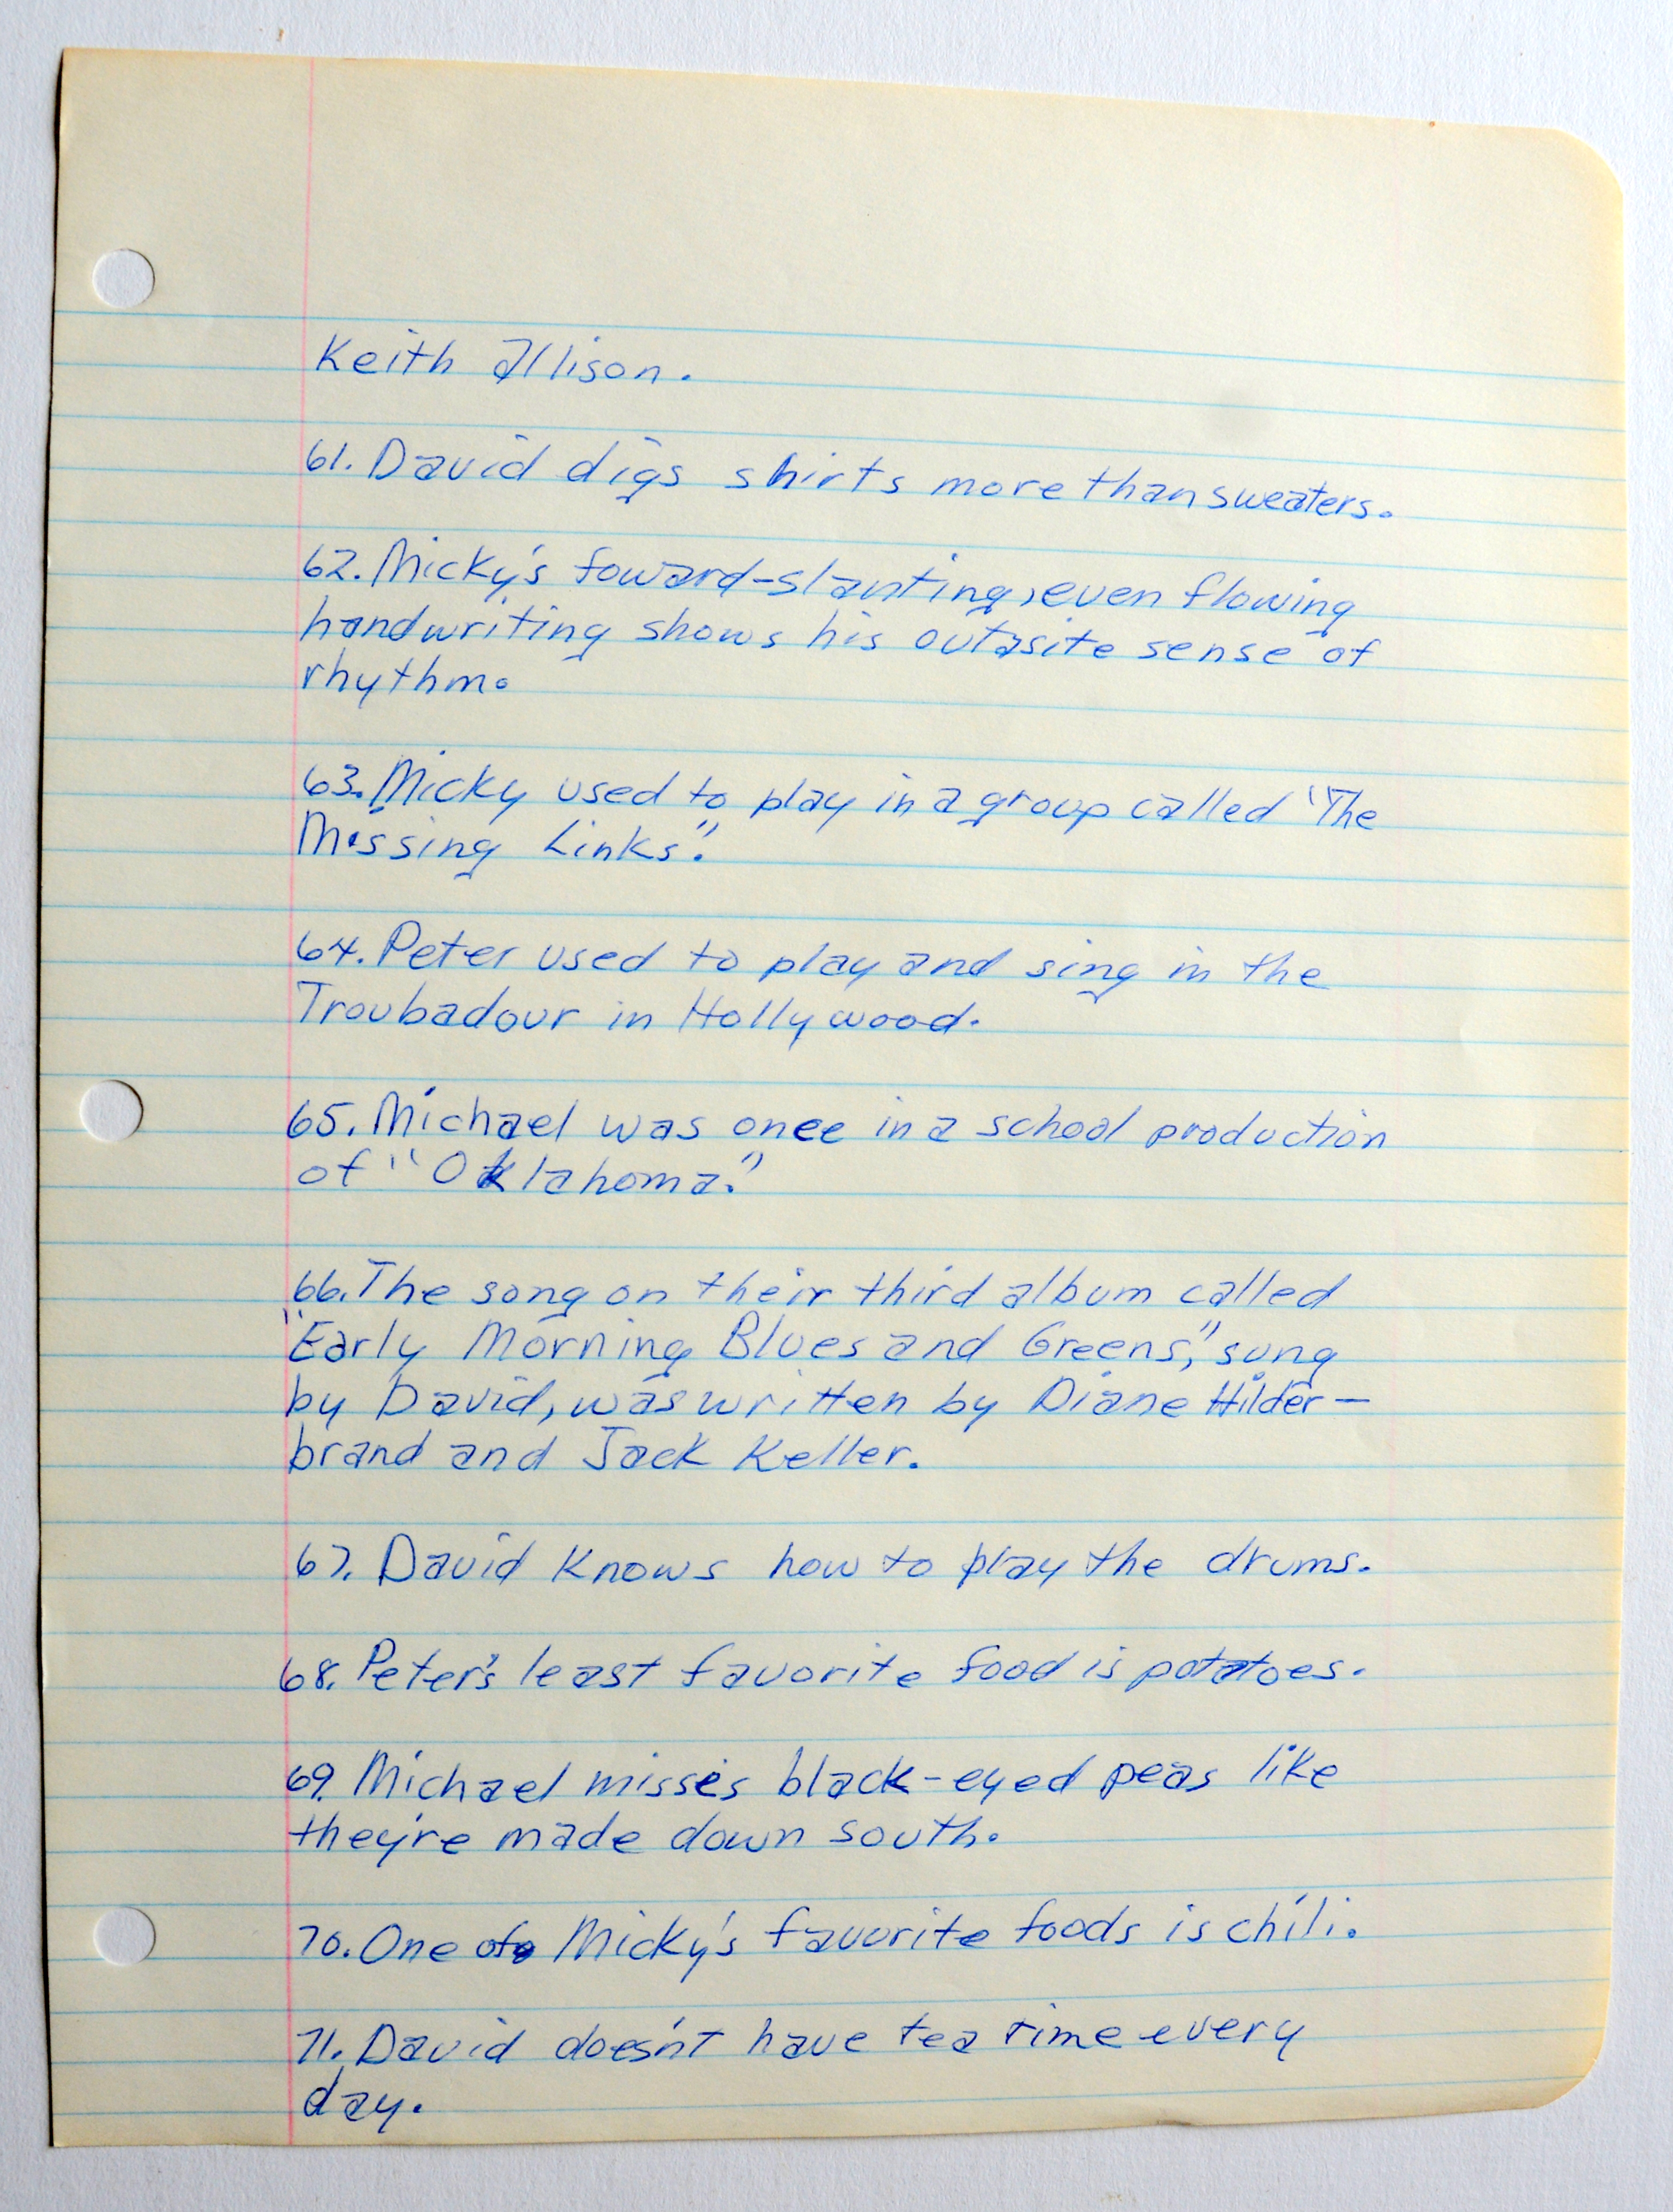 Keith Allison.
61. David digs shirts more than sweaters.
62. Micky's foward-slanting, even flowing
handwriting shows his outasite sense of
rhythm.
63. Micky used to play in a group called "The
Missing Links."
64. Peter used to play and sing in the
Troubadour in Hollywood.
65. Michael was once in a school production
of "Oklahoma."
66. The song on their third album called
"Early Morning Blues and Greens," sung
by David, was written by Diane Hilder-
brand and Jack Keller.
67. David knows how to play the drums.
68. Peter's least favorite food is potatoes.
69. Michael misses black-eyed peas like
they're made down south.
70. One of Micky's favorite foods is chili.
71. David doesn't have tea time every
day.